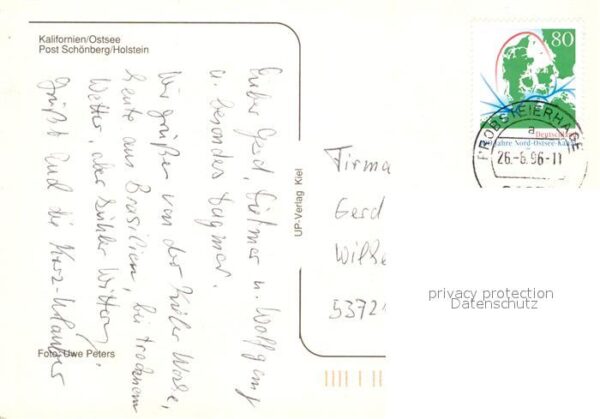 Kalifornien/Ostsee
Post Schönberg/Holstein
Lieber Gerd, Dietmar u. Wolfgang
u. besonders Dagmar.
Wir grüßen von der Kieler Woche,
heute aus Brasilien, bei trockenem
Wetter, aber kühler Witterung,
grüßt Euch die Kurz-Urlauber
Foto: Uwe Peters
UP-Verlag Kiel
80
Deutschland
Jahre Nord-Ostsee-Kanal
PROBSTEIERHAGE
a
26.-6.96-11
Firma
Gerd
5372
privacy protection
Datenschutz